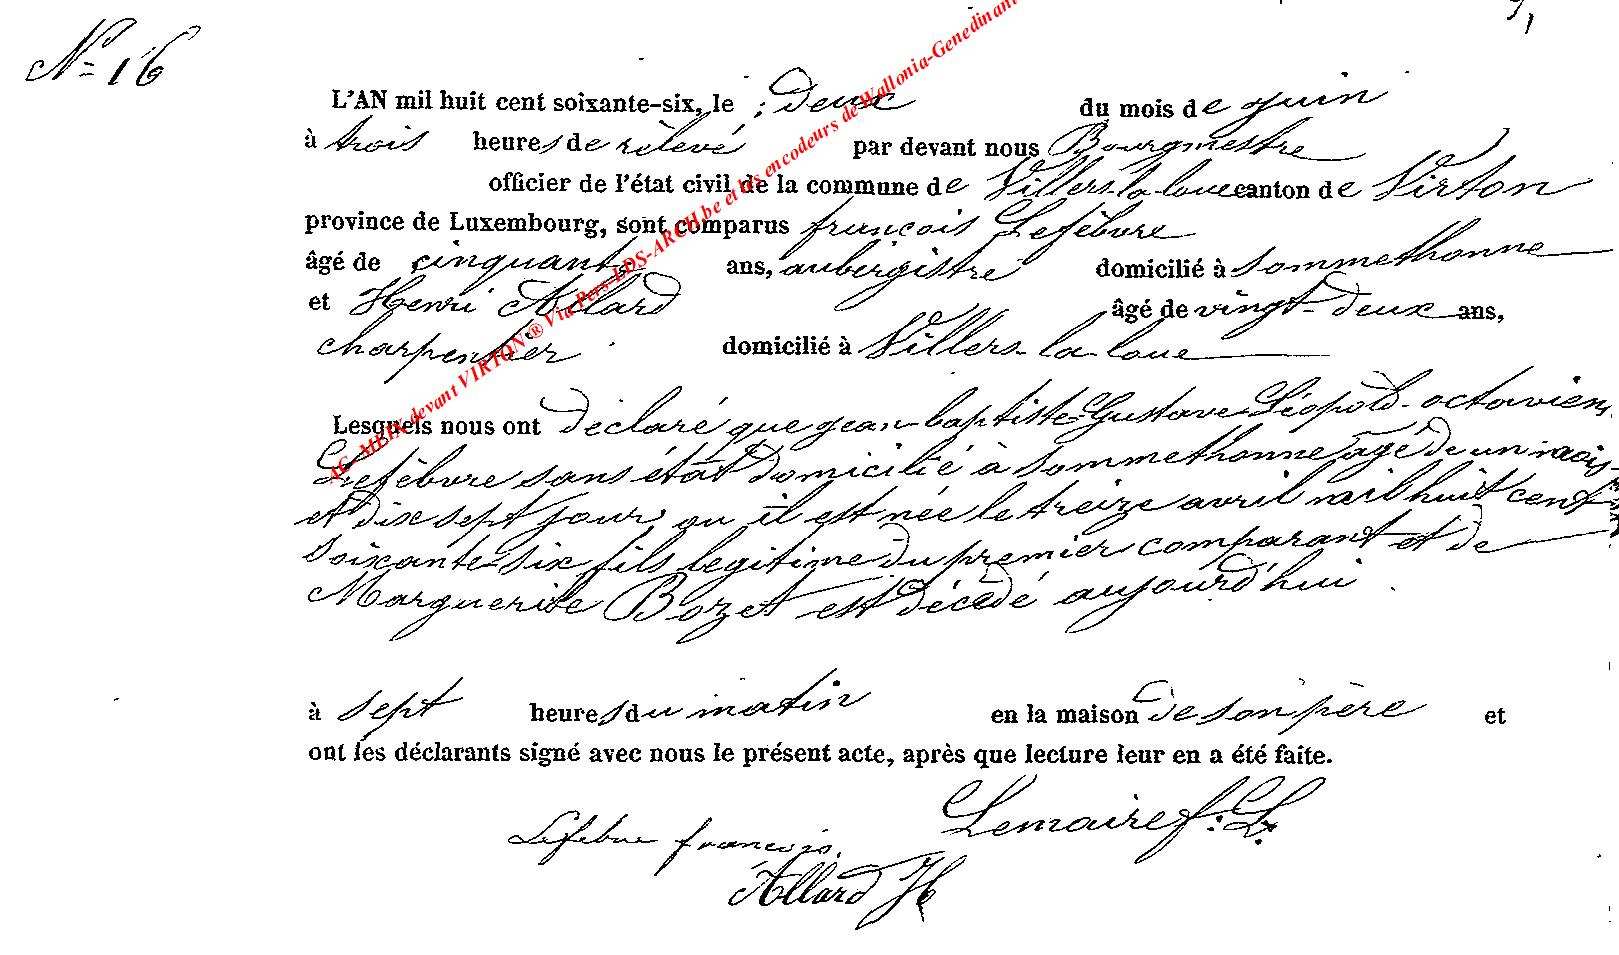 N° 16
L'AN mil huit cent soixante-six, le : deux du mois de juin
à trois heures de rélevé par devant nous Bourgmestre
officier de l'état civil de la commune de Villers-la-loue canton de Virton
province de Luxembourg, sont comparus françois Lefèbvre
âgé de cinquante ans, aubergistre domicilié à Sommethonne
et Henri Allard âgé de vingt-deux ans,
charpentier domicilié à Villers-la-loue
Lesquels nous ont déclaré que jean-baptiste-Gustave-Léopold-octavien
Lefèbvre sans état domicilié à Sommethonne agé de un mois
et dix sept jour, ou il est née le treize avril mil huit cent
soixante-six fils legitime du premier comparant et de
Marguerite Bozet est décédé aujourd'hui
à sept heures du matin en la maison de son père et
ont les déclarants signé avec nous le présent acte, après que lecture leur en a été faite.
Lemaire f: L.
Lefebvre françois.
Allard H
AC-MEIX devant VIRTON® Via Pers-LDS-ARCH.be et les encodeurs de Wallonia-Genedinant